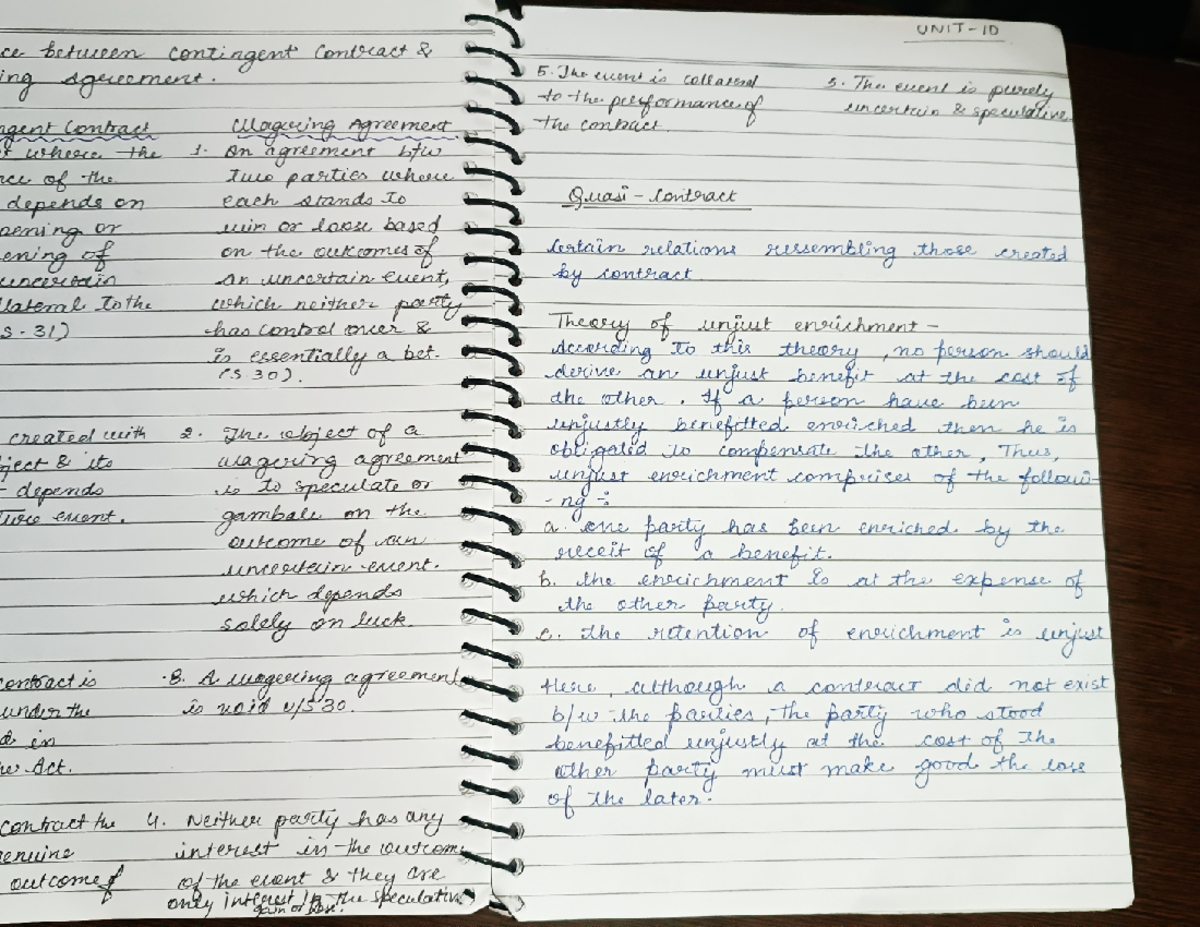 ce between Contingent Contract &
ing Agreement.
ngent Contract Wagering Agreement
where the 1. An agreement b/w
nce of the two parties where
depends on each stands to
pening or win or loose based
ening of on the outcomes of
uncertain an uncertain event,
lateral to the which neither party
S.31) has control over &
is essentially a bet.
(S.30).
created with 2. The object of a
ject & its wagering agreement
depends is to speculate or
ture event. gambale on the
outcome of an
uncertain event.
which depends
solely on luck.
contract is 3. A wagering agreement
under the is void u/S 30.
d in
he Act.
contract the 4. Neither party has any
enuine interest in the outcome
outcome of of the event & they are
only interest in the speculative
gain or loss.
UNIT-10
5. The event is collateral 5. The event is purely
to the performance of uncertain & speculative.
the contract.
Quasi-Contract
Certain relations ressembling those created
by contract.
Theory of unjust enrichment -
According to this theory, no person should
derive an unjust benefit at the cost of
the other. If a person have been
unjustly benefitted enriched then he is
obligated to compensate the other, Thus,
unjust enrichment comprises of the followi-
-ng :-
a. one party has been enriched by the
receit of a benefit.
b. the enrichment is at the expense of
the other party.
c. the retention of enrichment is unjust
Here, although a contract did not exist
b/w the parties, the party who stood
benefitted unjustly at the cost of the
other party must make good the loss
of the later.